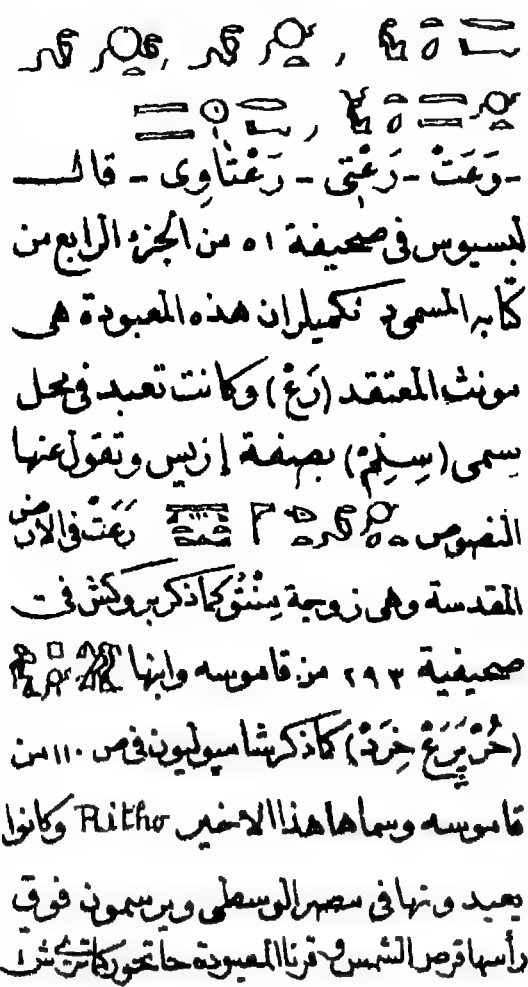 - رَعَتْ - رَعْتِى - رَعْتَاوِى - قال
لبسيوس فى صحيفة ٥١ من الجزء الرابع من
كتابه المسمى د نكميلران هذه المعبودة هى
مونث المعتقد (رَعْ) وكانت تعبد فى محل
يسمى (سِنِلمْ) بصفة إزيس وتقول عنها
النصوص رَعَتْ فى الارض
المقدسة وهى زوجة مِنْتُو كما ذكر بروكش فى
صحيفية ٢٩٣ من قاموسه وابنها
(حُرْ پَرَعْ خِرَدْ) كما ذكر شامپوليون فى ص ١١٠ من
قاموسه وسماها هذا الاخير Ritho وكانوا
يعبدونها فى مصر الوسطى ويرسمون فوق
رأسها قرص الشمس وقرنا المعبودة حاتحور كما ترى